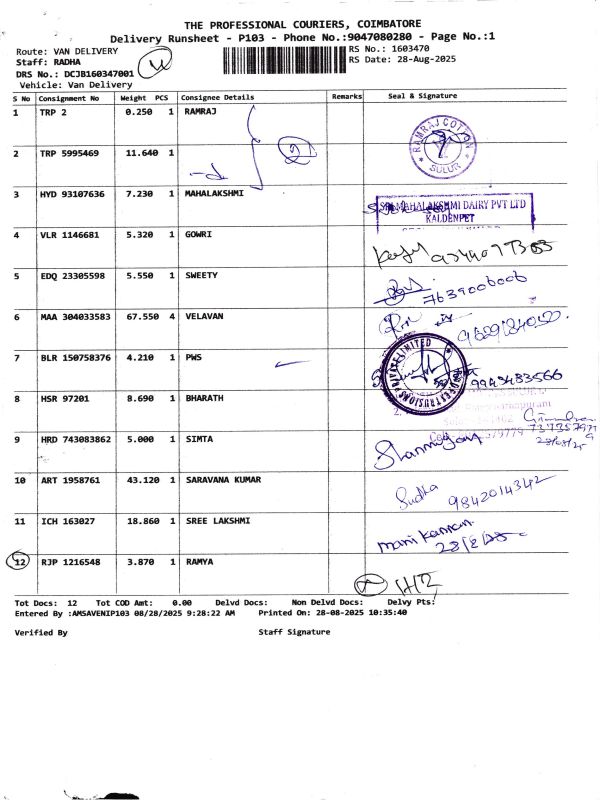 THE PROFESSIONAL COURIERS, COIMBATORE
Delivery Runsheet - P103 - Phone No.:9047080280 - Page No.:1
Route: VAN DELIVERY
RS No.: 1603470
Staff: RADHA
RS Date: 28-Aug-2025
DRS No.: DCJB160347001
Vehicle: Van Delivery
S No Consignment No Weight PCS Consignee Details Remarks Seal & Signature
1 TRP 2 0.250 1 RAMRAJ
RAMRAJ COTTON
SULUR
2 TRP 5995469 11.640 1
3 HYD 93107636 7.230 1 MAHALAKSHMI
SRI MAHALAKSHMI DAIRY PVT LTD
KALDENPET
4 VLR 1146681 5.320 1 GOWRI
5 EDQ 23305598 5.550 1 SWEETY
7639006006
6 MAA 304033583 67.550 4 VELAVAN
7 BLR 150758376 4.210 1 PWS
9943483566
8 HSR 97201 8.690 1 BHARATH
9 HRD 743083862 5.000 1 SIMTA
10 ART 1958761 43.120 1 SARAVANA KUMAR
Sudha 9842014342
11 ICH 163027 18.860 1 SREE LAKSHMI
mani kannan
28/8/25
12 RJP 1216548 3.870 1 RAMYA
Tot Docs: 12 Tot COD Amt: 0.00 Delvd Docs: Non Delvd Docs: Delvy Pts:
Entered By :AMSAVENIP103 08/28/2025 9:28:22 AM Printed On: 28-08-2025 10:35:40
Verified By Staff Signature